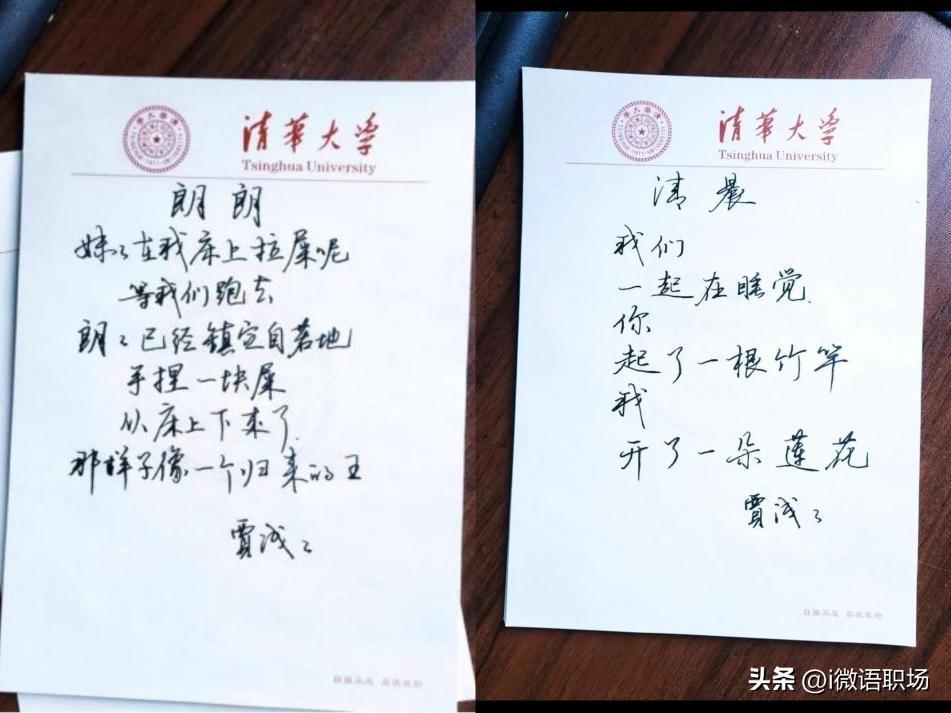 清华大学
Tsinghua University
朗朗
妹々在我床上拉屎呢
等我们跑去
朗々已经镇定自若地
手捏一块屎
从床上下来了.
那样子像一个归来的王
贾浅々
自强不息 厚德载物
清华大学
Tsinghua University
清晨
我们
一起在睡觉.
你
起了一根竹竿
我
开了一朵莲花
贾浅々
自强不息 厚德载物
头条 @i微语职场